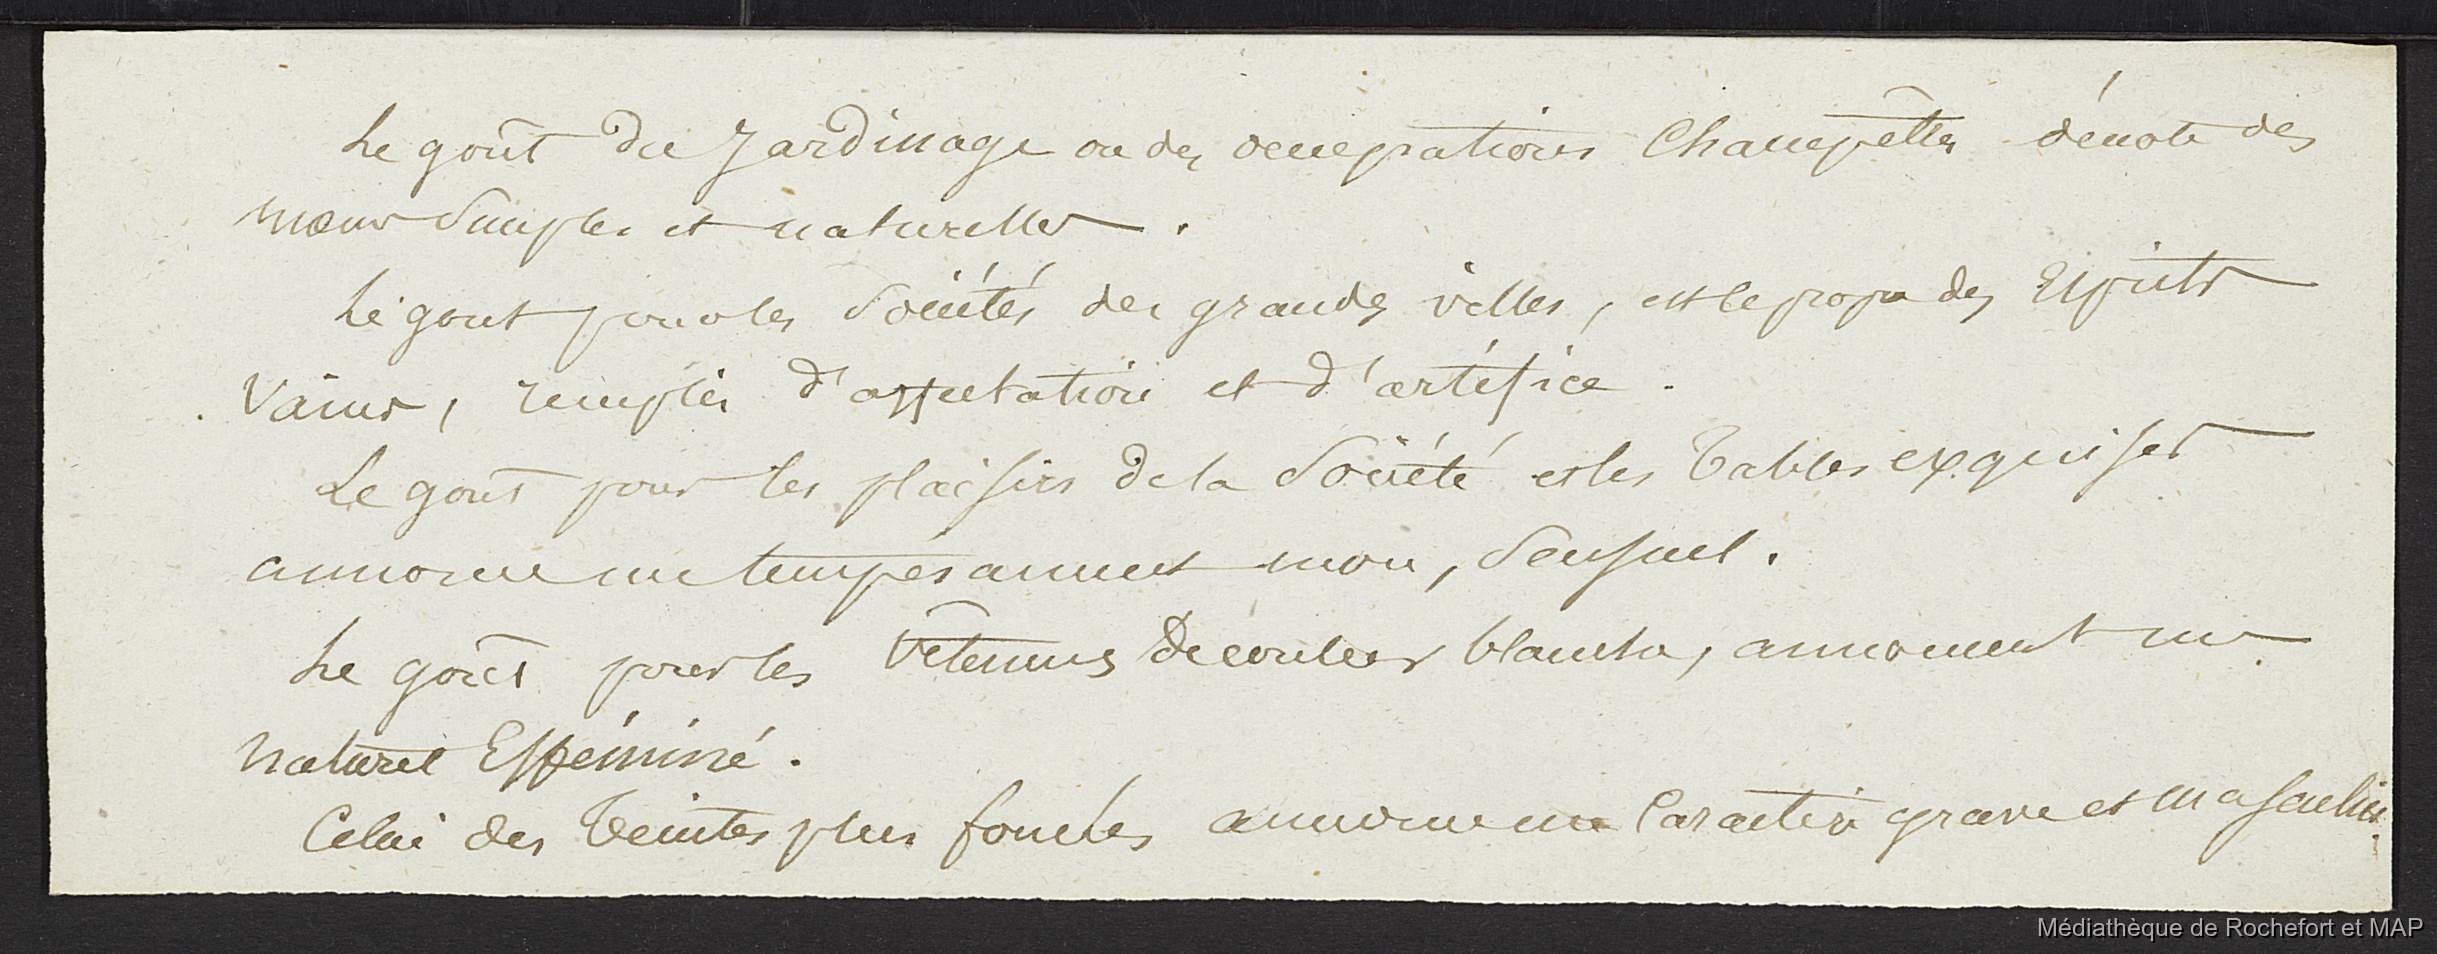 Le goût du Jardinage ou des occupations Champêtres dénote des
mœurs Simples et naturelles.
Le gout pour les Sociétés des grandes villes, est le propre des Esprits
Vains, remplis d'affectation et d'artifice.
Le gout pour les plaisirs de la Société et les Tables exquises
annonce un tempérament mou, Sensuel.
Le goût pour les Vêtemens de couleur blanche, annoncent un
naturel Efféminé.
Celui des Teintes plus foncées annonce un Caractère grave et masculin.
Médiathèque de Rochefort et MAP